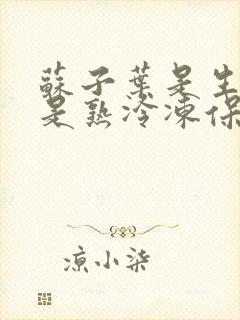 蘇子葉是生
是熟冷凍保
涼小柒